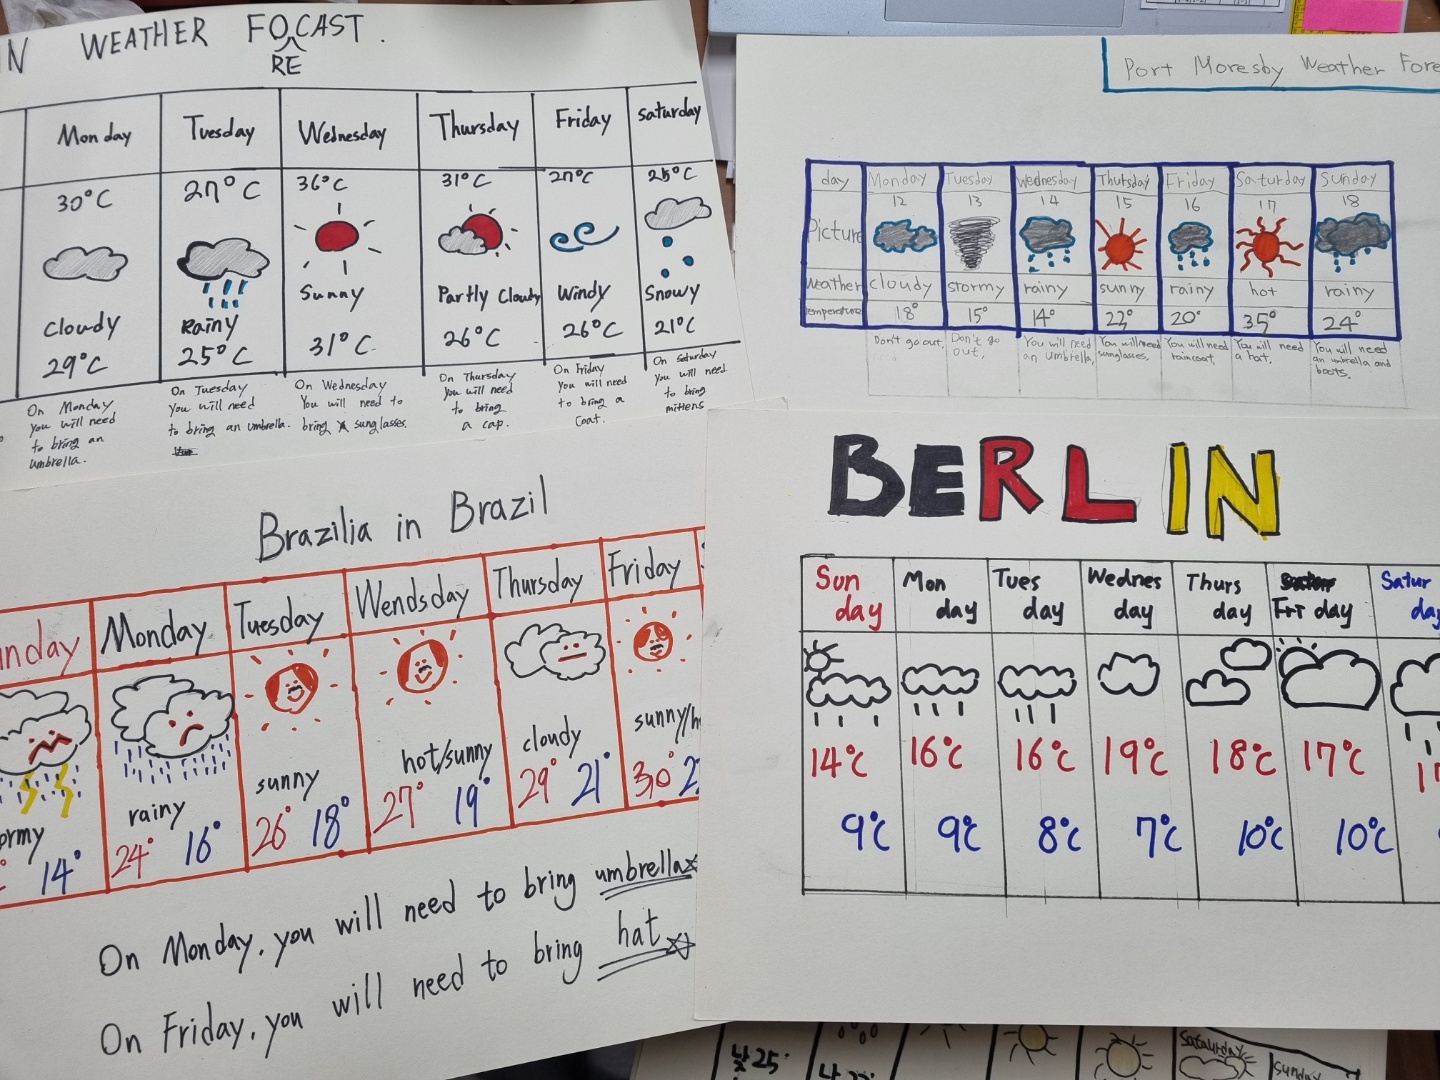 IN WEATHER FOCAST.
RE
Monday Tuesday Wednesday Thursday Friday Saturday
30°C 27°C 36°C 31°C 27°C 25°C
Cloudy Rainy Sunny Partly Cloudy Windy Snowy
29°C 25°C 31°C 26°C 26°C 21°C
On Monday
you will need
to bring an
umbrella.
On Tuesday
you will need
to bring an umbrella.
On Wednesday
You will need to
bring sunglasses.
On Thursday
you will need
to bring
a cap.
On Friday
you will need
to bring a
coat.
On Saturday
you will need
to bring
mittens
Port Moresby Weather Fore
day Monday Tuesday Wednesday Thutsday Friday Saturday Sunday
12 13 14 15 16 17 18
Picture
Weather cloudy stormy rainy sunny rainy hot rainy
temperature 18° 15° 14° 22° 20° 35° 24°
Don't go out.
Don't go
out.
You will need
an umbrella.
You will need
sunglasses.
You will need
raincoat.
You will need
a hat.
You will need
an umbrella and
boots.
Brazilia in Brazil
nday Monday Tuesday Wendsday Thursday Friday
ormy rainy sunny hot/sunny cloudy sunny/h
14° 24° 16° 26° 18° 27° 19° 29° 21° 30° 2
On Monday, you will need to bring umbrella
On Friday, you will need to bring hat
BERLIN
Sun Mon Tues Wednes Thurs Satur
day day day day day Fri day day
14°C 16°C 16°C 19°C 18°C 17°C 1
9°C 9°C 8°C 7°C 10°C 10°C
낮 25°
Sataurday
sunday